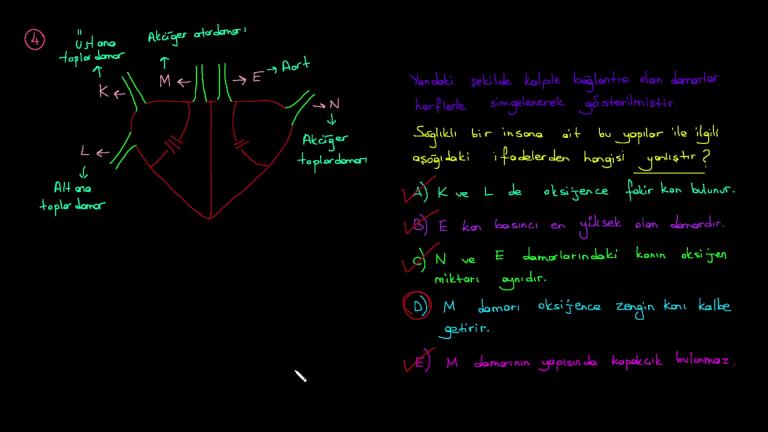 4
Üst ana
toplardamar
Akciğer atardamarı
K
M
E
Aort
N
Akciğer
toplardamarı
L
Alt ana
toplardamar
Yandaki şekilde kalple bağlantısı olan damarlar
harflerle simgelenerek gösterilmiştir.
Sağlıklı bir insana ait bu yapılar ile ilgili
aşağıdaki ifadelerden hangisi yanlıştır?
A) K ve L de oksijence fakir kan bulunur.
B) E kan basıncı en yüksek olan damardır.
C) N ve E damarlarındaki kanın oksijen
miktarı aynıdır.
D) M damarı oksijence zengin kanı kalbe
getirir.
E) M damarının yapısında kapakçık bulunmaz.